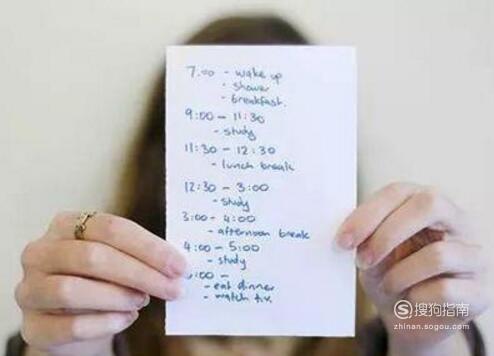 7.00 - wake up
- shower
- breakfast.
9:00 - 11:30
- study
11:30 - 12:30
- lunch break
12:30 - 3:00
- study
3:00 - 4:00
- afternoon break
4:00 - 5:00
- study
:00 -
- eat dinner
- watch t.v.
搜狗指南
zhinan.sogou.com